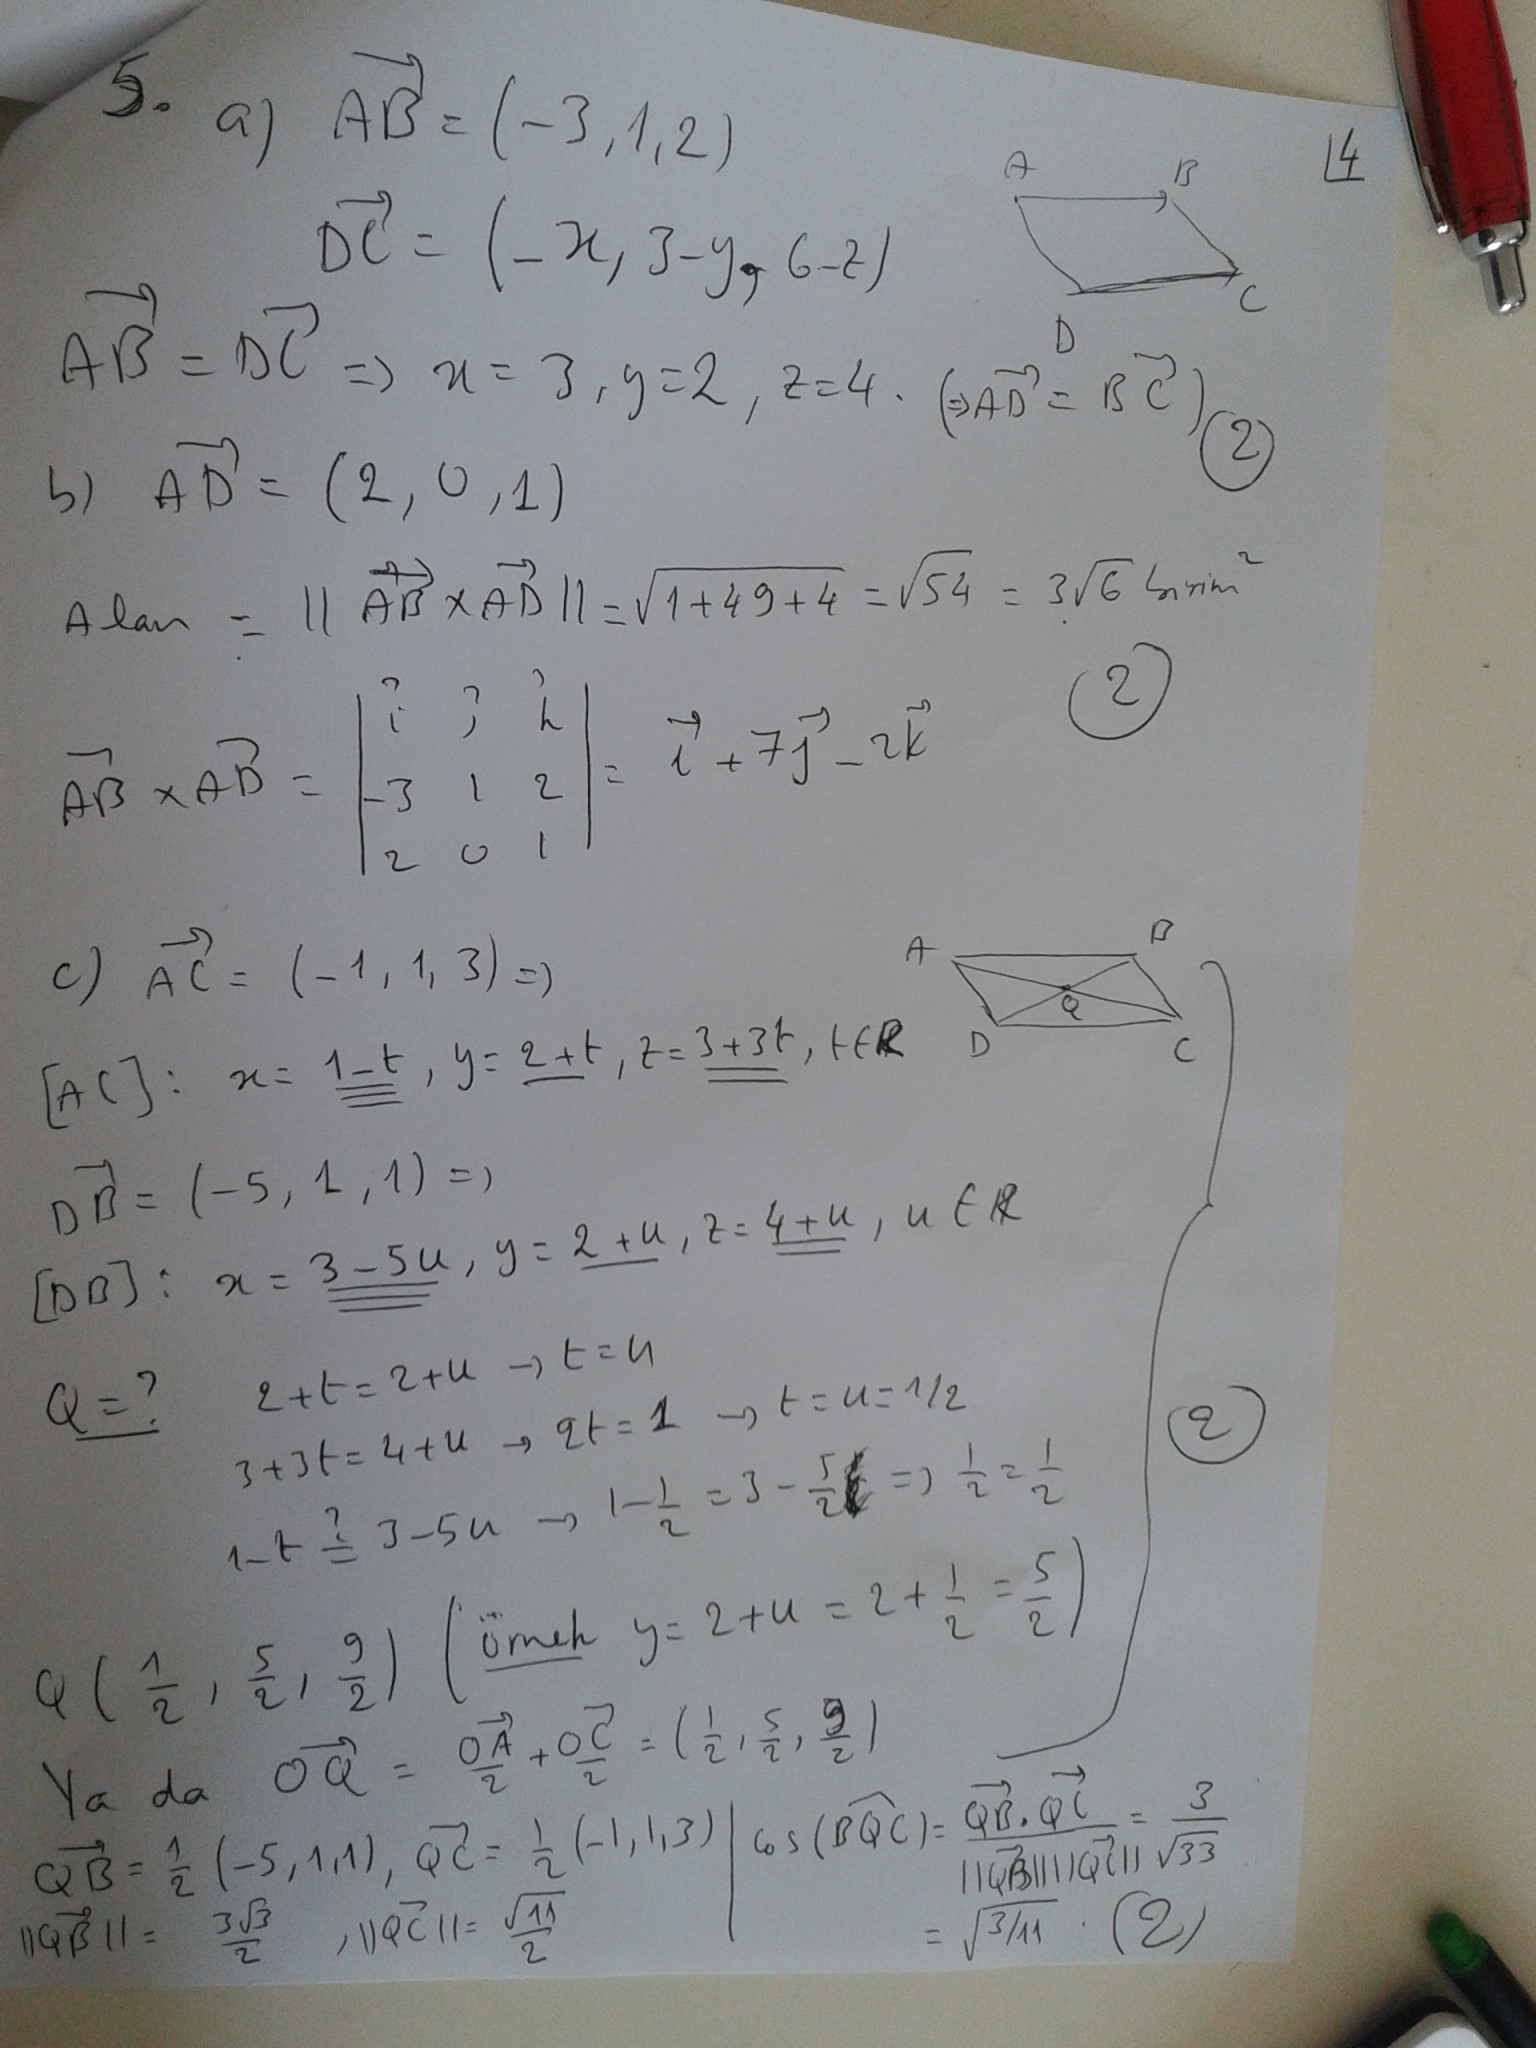 5. a) AB⃗ = (-3,1,2)
14
A B
DC⃗ = (-x, 3-y, 6-z)
D C
AB⃗ = DC⃗ => x = 3, y=2, z=4. (=>AD⃗ = BC⃗) (2)
b) AD⃗ = (2, 0, 1)
Alan = || AB⃗ x AD⃗ || = √(1+49+4) = √54 = 3√6 birim²
(2)
AB⃗ x AD⃗ = | i⃗ j⃗ k⃗ | = i⃗ + 7j⃗ - 2k⃗
-3 1 2
2 0 1
c) AC⃗ = (-1, 1, 3) =>
A B
Q
D C
[AC]: x = 1-t, y = 2+t, z = 3+3t, t∈R
DB⃗ = (-5, 1, 1) =>
[DB]: x = 3-5u, y = 2+u, z = 4+u, u∈R
Q=? 2+t = 2+u → t=u
3+3t = 4+u → 2t = 1 → t=u=1/2
(2)
1-t ?= 3-5u → 1-1/2 = 3-5/2 => 1/2 = 1/2
Q(1/2, 5/2, 9/2) (örnek y = 2+u = 2+1/2 = 5/2)
Ya da OQ⃗ = OA⃗/2 + OC⃗/2 = (1/2, 5/2, 9/2)
QB⃗ = 1/2 (-5,1,1), QC⃗ = 1/2 (-1,1,3) | cos(BQC) = QB⃗.QC⃗ / ||QB⃗||||QC⃗|| = 3/√33
||QB⃗|| = 3√3/2, ||QC⃗|| = √11/2
= √3/11. (2)